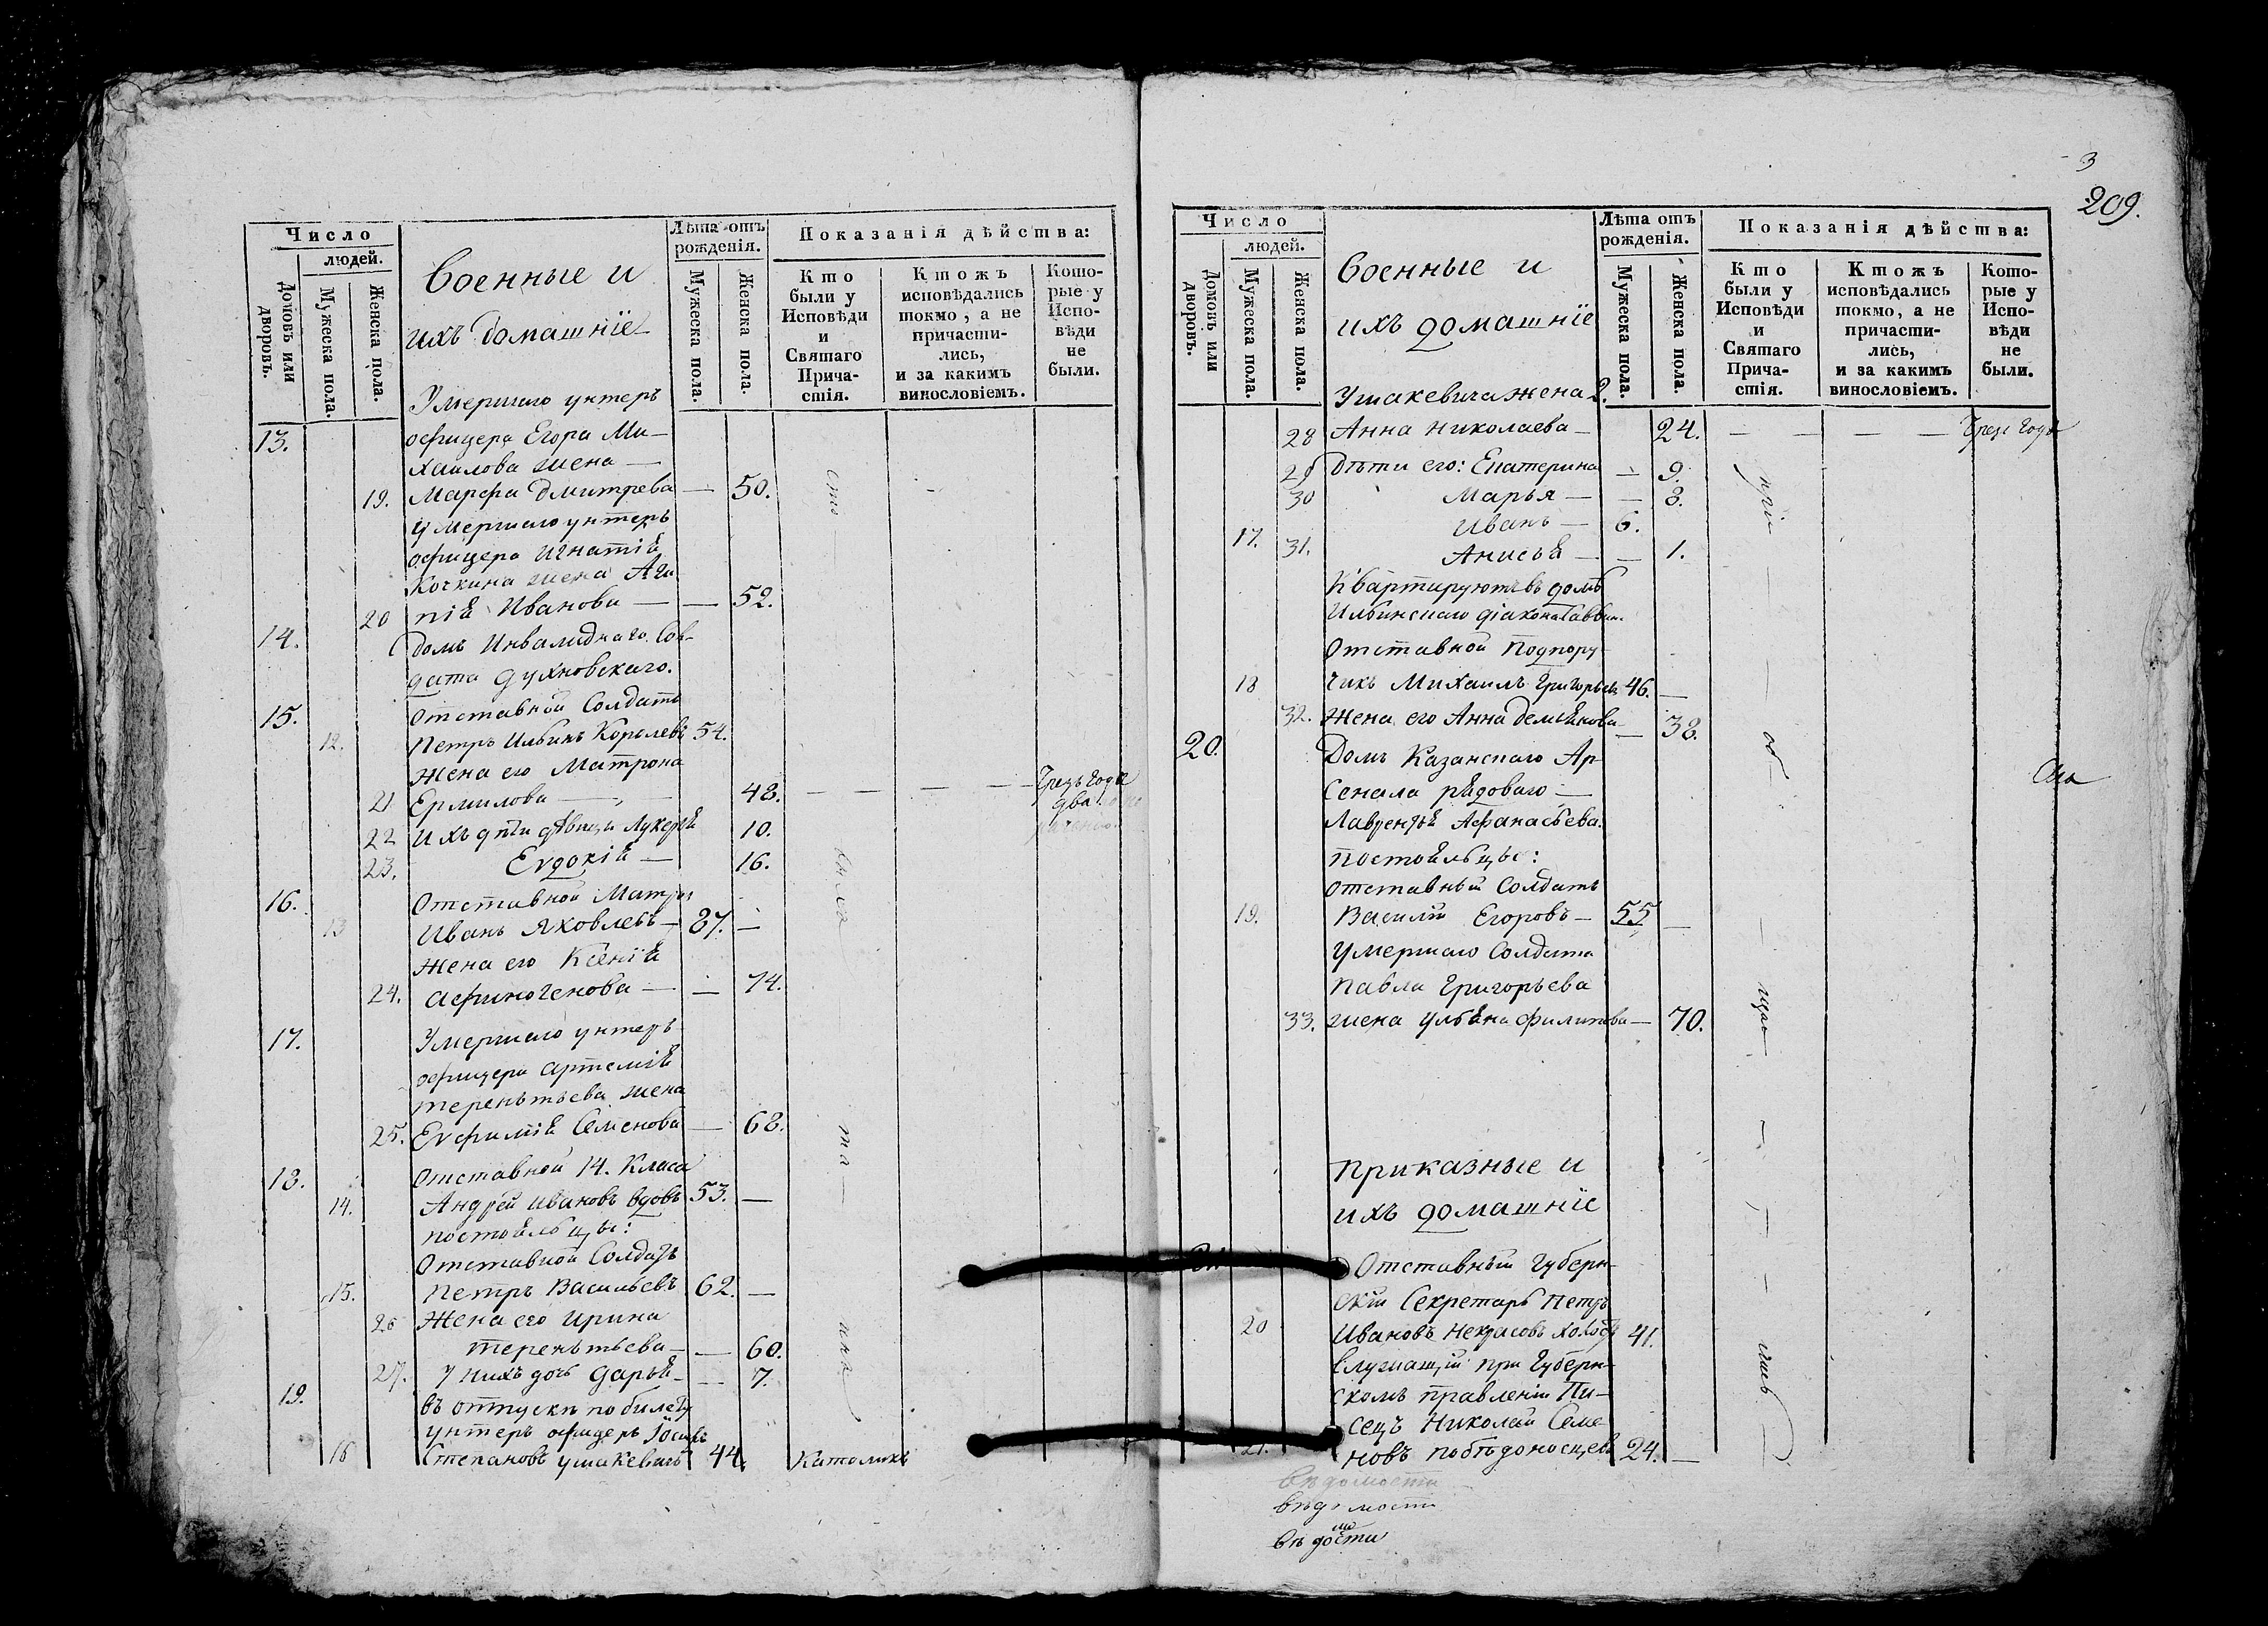 3
209.
Число
людей.
Домовъ или дворовъ.
Мужеска пола.
Женска пола.
Военные и
ихъ домашнїе
Лѣта отъ рожденія.
Мужеска пола.
Женска пола.
Показанія дѣйства:
Кто были у Исповѣди и Святаго Причастія.
Ктожъ исповѣдались токмо, а не причастились, и за какимъ винословіемъ.
Которые у Исповѣди не были.
Умершаго унтеръ
13. офицера Егора Ми-
хаилова жена —
19. Марфа Дмитрева — 50.
Умершаго унтеръ
офицера Игнатія
Кочкина жена Ага
20 пія Иванова — — 52.
14. Домъ Инвалиднаго Сол-
дата Духновскаго.
15. Отставной Солдатъ
12. Петръ Ильинъ Королевъ 54.
жена его Матрона
21 Ермилова — 48. — — — — Чрезъ года
два
22 Ихъ дѣти дѣвицы Лукерія 10.
23. Евдокія — 16.
16. Отставной Матрос
13 Иванъ Яковлевъ — 87. —
жена его Ксенія
24. Афиногенова — — 74.
17. Умершаго унтеръ
офицера Артемія
терентьева жена
25. Евфимія Семенова — 68.
18. Отставной 14. Класа
14. Андрей Ивановъ вдовъ 53. —
постояльцы:
Отставной Солдатъ
15. Петръ Васильевъ 62. —
26 Жена его Ирина
терентьева — — 60.
27. У нихъ дочь Дарья — — 7.
19. въ отпуски по билету
унтеръ офицеръ Іосифъ
16 Степановъ Ушакевичъ 44. Католикъ
Число
людей.
Домовъ или дворовъ.
Мужеска пола.
Женска пола.
Военные и
ихъ домашнїе
Лѣта отъ рожденія.
Мужеска пола.
Женска пола.
Показанія дѣйства:
Кто были у Исповѣди и Святаго Причастія.
Ктожъ исповѣдались токмо, а не причастились, и за какимъ винословіемъ.
Которые у Исповѣди не были.
Ушакевича жена
28 Анна Николаева — 24. — — — — Чрезъ года
29 Дѣти его: Екатерина — 9.
30 Марья — — 8.
17. Иванъ — 6.
31. Анисья — — 1.
Квартируютъ въ домѣ
Ильинскаго діакона
Отставной Подпору
18 чикъ Михаилъ Григорьевъ 46. —
32. Жена его Анна Демьянова — 38.
20. Домъ Казанскаго Ар
сенала рядоваго —
Лаврентья Афанасьева.
постояльцы:
отставный Солдатъ
19. Василій Егоровъ — 55 —
Умершаго Солдата
Павла Григорьева
33. жена Ульяна Филипова — 70.
Приказные и
ихъ домашнїе
Отставный Губерн-
скій Секретарь Петръ
20 Ивановъ Некрасовъ холостъ 41.
Служащій при Губерн-
скомъ правленіи Пи-
сецъ Николай Семе
21. новъ Побѣдоносцевъ 24. —
вѣдомости
вѣдомости